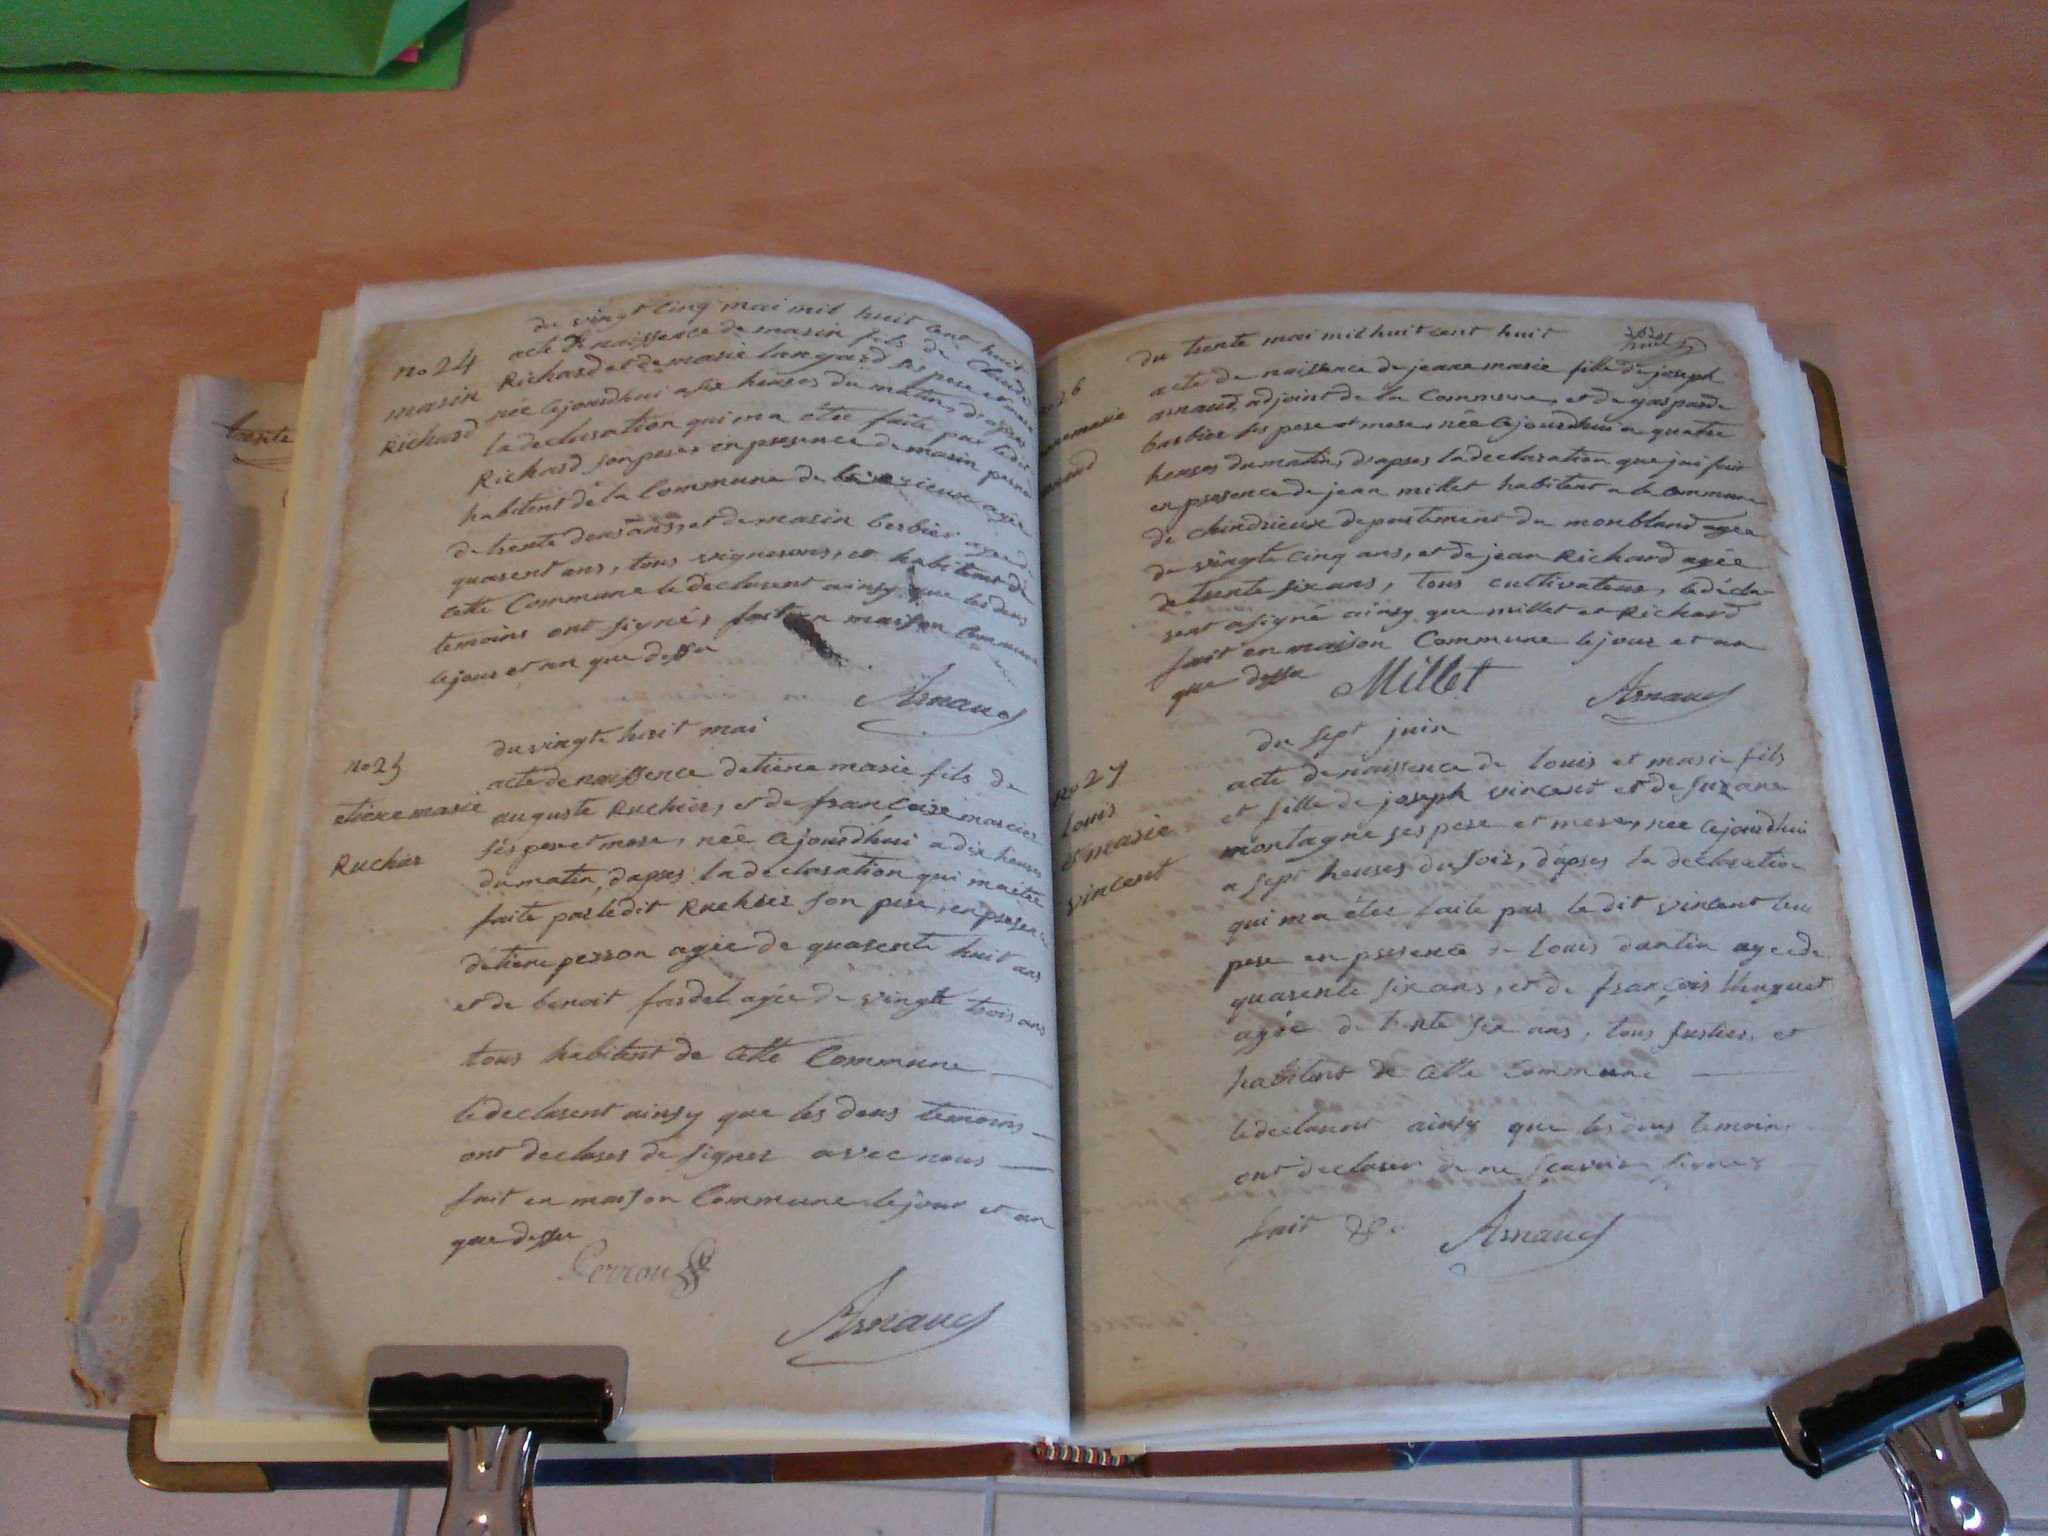 du vingt cinq mai mil huit cent huit
no 24
acte de naissence de marin fils de Claude
marin
Richard et de marie langard ses pere et mere
Richard
née cejourdhui a six heures du matin, d'apres
la declaration qui ma étée faite par ledit
Richard son pere, en presence de marin
habitent de la Commune de agée
de trente deux ans, et de marin berbier agée de
quarent ans, tous vignerons, et habitent de
cette Commune le declarent ainsy que les deux
temoins ont signé, fait en maison Commune
le jour et an que dessu
Arnaud
du vingte huit mai
no 25
acte de naissence detiene marie fils de
etiene marie
auguste Ruchier, et de françoise marcier
Ruchier
sés pere et mere, née cejourdhui a dix heures
du matin, dapres la declaration qui ma etée
faite par ledit Ruchier son pere, en presence
detiene perron agée de quarente huit ans
et de benoit fardel agée de vingte trois ans
tous habitent de cette Commune
le declarent ainsy que les deux temoins
ont declarer de signer avec nous
fait en maison Commune le jour et an
que dessu
Perron
Arnaud
du trente mai mil huit cent huit
acte de naissence de jeane marie fille de joseph
arnaud, adjoint de la Commune, et de gasparde
barbier ses pere et mere, née cejourdhui a quatre
heures du matin, d'apres la declaration que jai fait
en presence de jean millet habitent a la commune
de chindrieux departement du monbland agée
de vingte cinq ans, et de jean Richard agée
de trente six ans, tous cultivateur, le décla-
rent a signé ainsy que millet et Richard
fait en maison Commune le jour et an
que dessu
Millet
Arnaud
du sept juin
no 27
acte de naissence de louis et marie fils
louis
et fille de joseph vincent et de suzane
et marie
montagne ses pere et mere, née cejourdhui
vincent
a sept heures du soir, dapres la declaration
qui ma étée faite par le dit vincent leur
pere en presence de louis dantin agée de
quarente six ans, et de françois huguet
agée de trente six ans, tous et
habitent de cette commune
le declarent ainsy que les deux temoins
ont declarer de ne scavoir signer
fait &c.
Arnaud